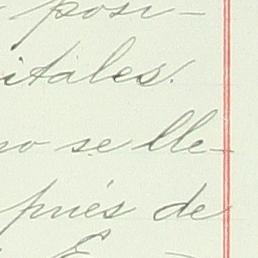 posi-
itales.
no se lle-
pués de